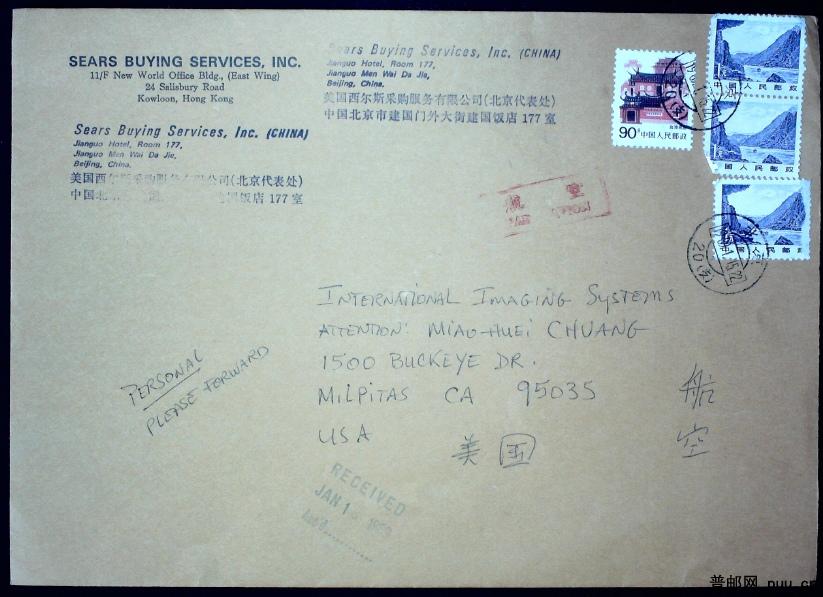 SEARS BUYING SERVICES, INC.
11/F New World Office Bldg., (East Wing)
24 Salisbury Road
Kowloon, Hong Kong
Sears Buying Services, Inc. (CHINA)
Jianguo Hotel, Room 177,
Jianguo Men Wai Da Jie,
Beijing, China.
美国西尔斯采购服务有限公司(北京代表处)
中国北京市建国门外大街建国饭店 177 室
Sears Buying Services, Inc. (CHINA)
Jianguo Hotel, Room 177,
Jianguo Men Wai Da Jie,
Beijing, China.
美国西尔斯采购 有限公司(北京代表处)
中国北 国饭店 177 室
90 中国人民邮政
中国人民邮政
国人民邮政
国人民邮政
20
INTERNATIONAL IMAGING SYSTEMS
ATTENTION: MIAO-HUEI CHUANG
1500 BUCKEYE DR.
MILPITAS CA 95035
USA 美国
航
空
PERSONAL
PLEASE FORWARD
RECEIVED
JAN 1
Ans'd
普邮网 puu.cn